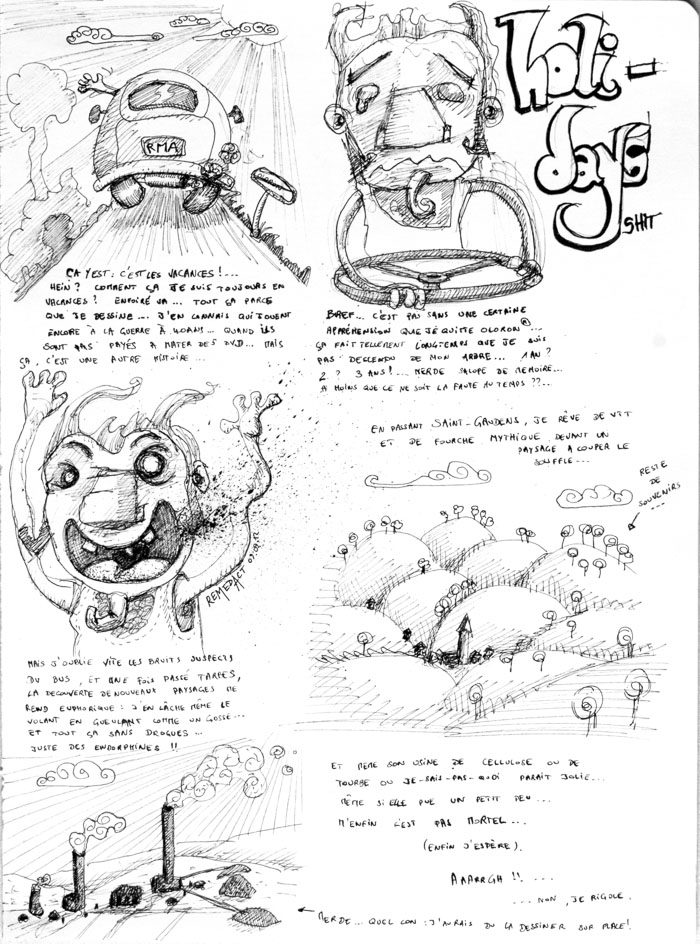 HOLI-
DAYS
SHIT
RMA
ÇA Y'EST : C'EST LES VACANCES !...
HEIN ? COMMENT ÇA JE SUIS TOUJOURS EN
VACANCES ? ENFOIRÉ VA... TOUT ÇA PARCE
QUE JE DESSINE... J'EN CONNAIS QUI JOUENT
ENCORE À LA GUERRE À 40 ANS... QUAND ILS
SONT PAS PAYÉS A MATER DES DVD... MAIS
ÇA, C'EST UNE AUTRE HISTOIRE...
BREF... C'EST PAS SANS UNE CERTAINE
APPRÉHENSION QUE JE QUITTE OLORON...
ÇA FAIT TELLEMENT LONGTEMPS QUE JE SUIS
PAS DESCENDU DE MON ARBRE... 1 AN ?
2 ? 3 ANS !... MERDE SALOPE DE MEMOIRE...
A MOINS QUE CE NE SOIT LA FAUTE AU TEMPS ??...
EN PASSANT SAINT-GAUDENS, JE RÊVE DE VTT
ET DE FOURCHE MYTHIQUE DEVANT UN
PAYSAGE A COUPER LE
SOUFFLE...
RESTE
DE
SOUVENIRS
...
REMEDACT 09.09.12
MAIS J'OUBLIE VITE LES BRUITS SUSPECTS
DU BUS, ET UNE FOIS PASSÉ TARBES,
LA DECOUVERTE DE NOUVEAUX PAYSAGES ME
REND EUPHORIQUE : J'EN LÂCHE MÊME LE
VOLANT EN GUEULANT COMME UN GOSSE...
ET TOUT ÇA SANS DROGUES...
JUSTE DES ENDORPHINES !!
ET MEME SON USINE DE CELLULOSE OU DE
TOURBE OU JE-SAIS-PAS-QUOI PARAIT JOLIE...
MÊME SI ELLE PUE UN PETIT PEU...
M'ENFIN C'EST PAS MORTEL...
(ENFIN J'ESPÈRE).
AAARRGH !! ....
...NON, JE RIGOLE.
MERDE... QUEL CON : J'AURAIS DU LA DESSINER SUR PLACE !